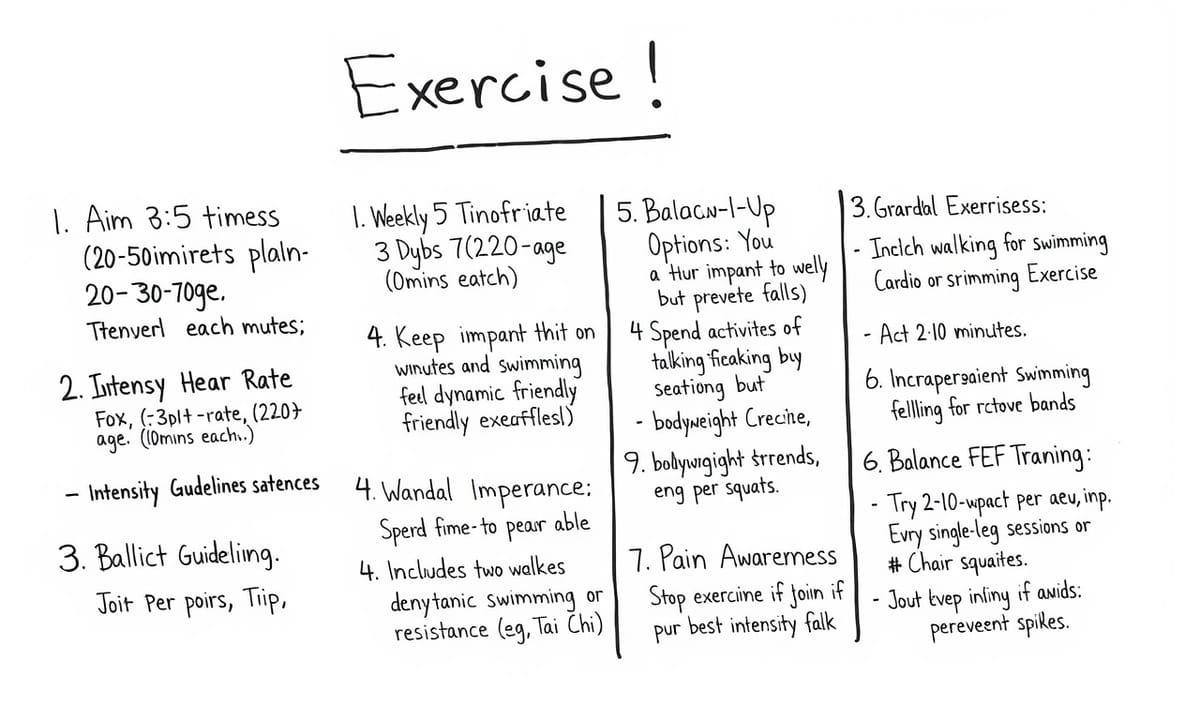 Exercise!
1. Aim 3:5 timess
(20-50imirets plaln-
20-30-70ge.
Ttenverl each mutes;
2. Intensy Hear Rate
Fox, (-3plt-rate, (220+
age. (10mins each..)
- Intensity Gudelines satences
3. Ballict Guideling.
Joit Per poirs, Tiip,
1. Weekly 5 Tinofriate
3 Dybs 7(220-age
(0mins eatch)
4. Keep impant thit on
winutes and swimming
feel dynamic friendly
friendly exearfflesl)
4. Wandal Imperance:
Sperd fime-to pear able
4. Includes two walkes
denytanic swimming or
resistance (eg, Tai Chi)
5. Balacw-l-Up
Options: You
a 'Hur impant to welly
but prevete falls)
4 Spend activites of
talking ficaking buy
seationg but
- bodyweight Crecine,
9. bollywigight srrends,
eng per squats.
7. Pain Awaremess
Stop exerciine if join if
pur best intensity falk
3. Grardal Exerrisess:
- Inclch walking for swimming
Cardio or srimming Exercise
- Act 2-10 minutes.
6. Incrapersaient Swimming
fellling for rctove bands
6. Balance FEF Traning:
- Try 2-10-wpact per aeu, inp.
Evry single-leg sessions or
# Chair squaites.
- Jout kvep inliny if awids:
pereveent spikes.